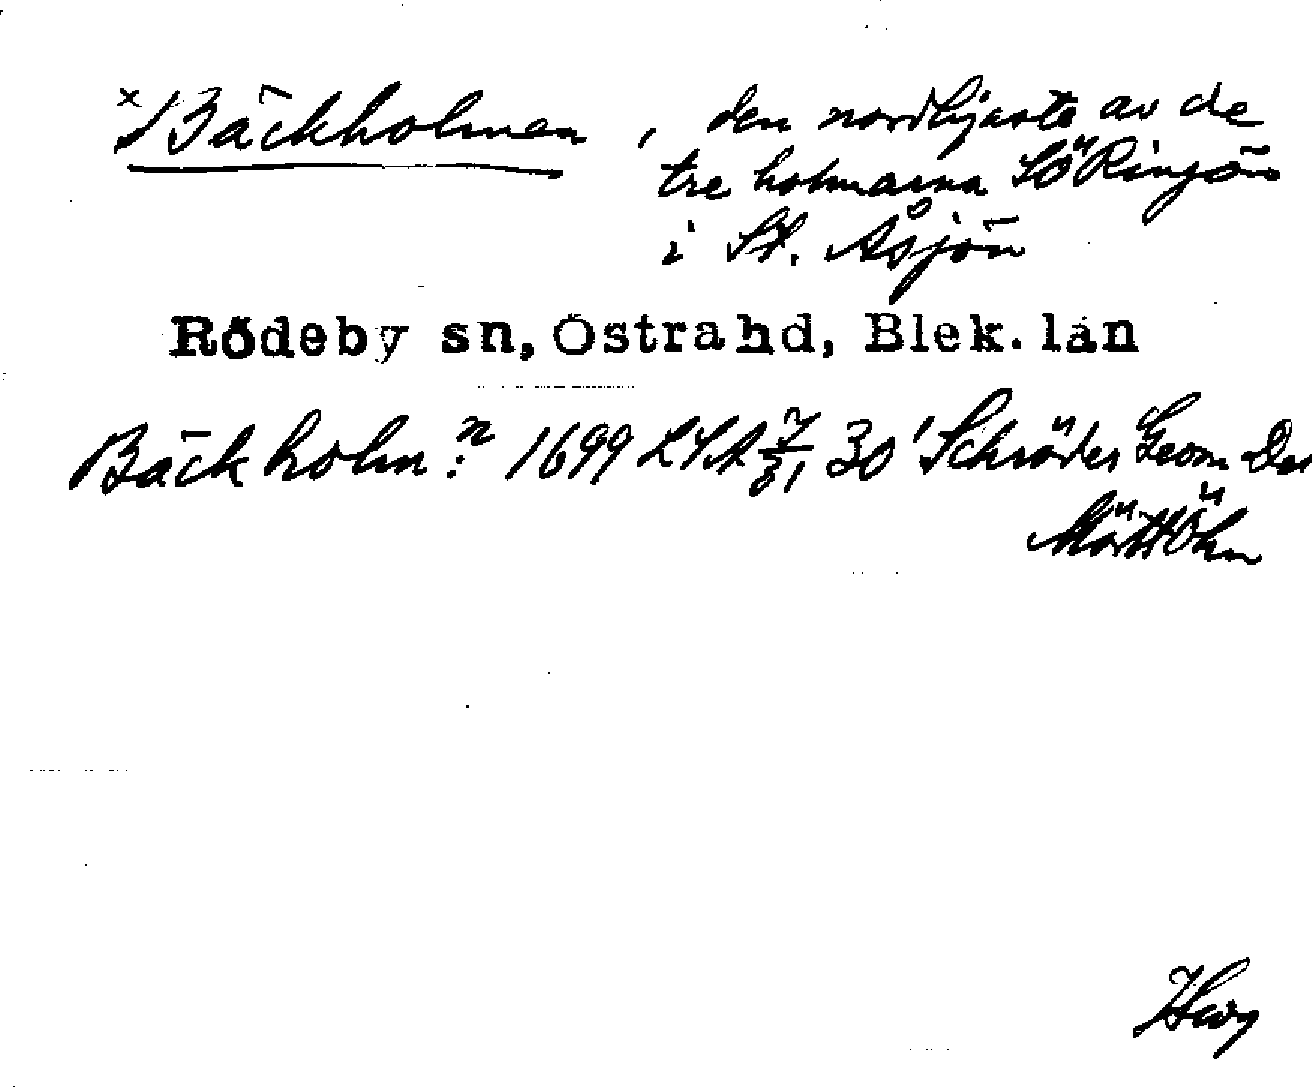 ×Bäckholmen, den nordligaste av de
tre holmarna SöRingön
i St. Åsjön
Rödeby sn, Östra hd, Blek. län
Bäckholm:n 1699 LSA 30 Schröder Geom